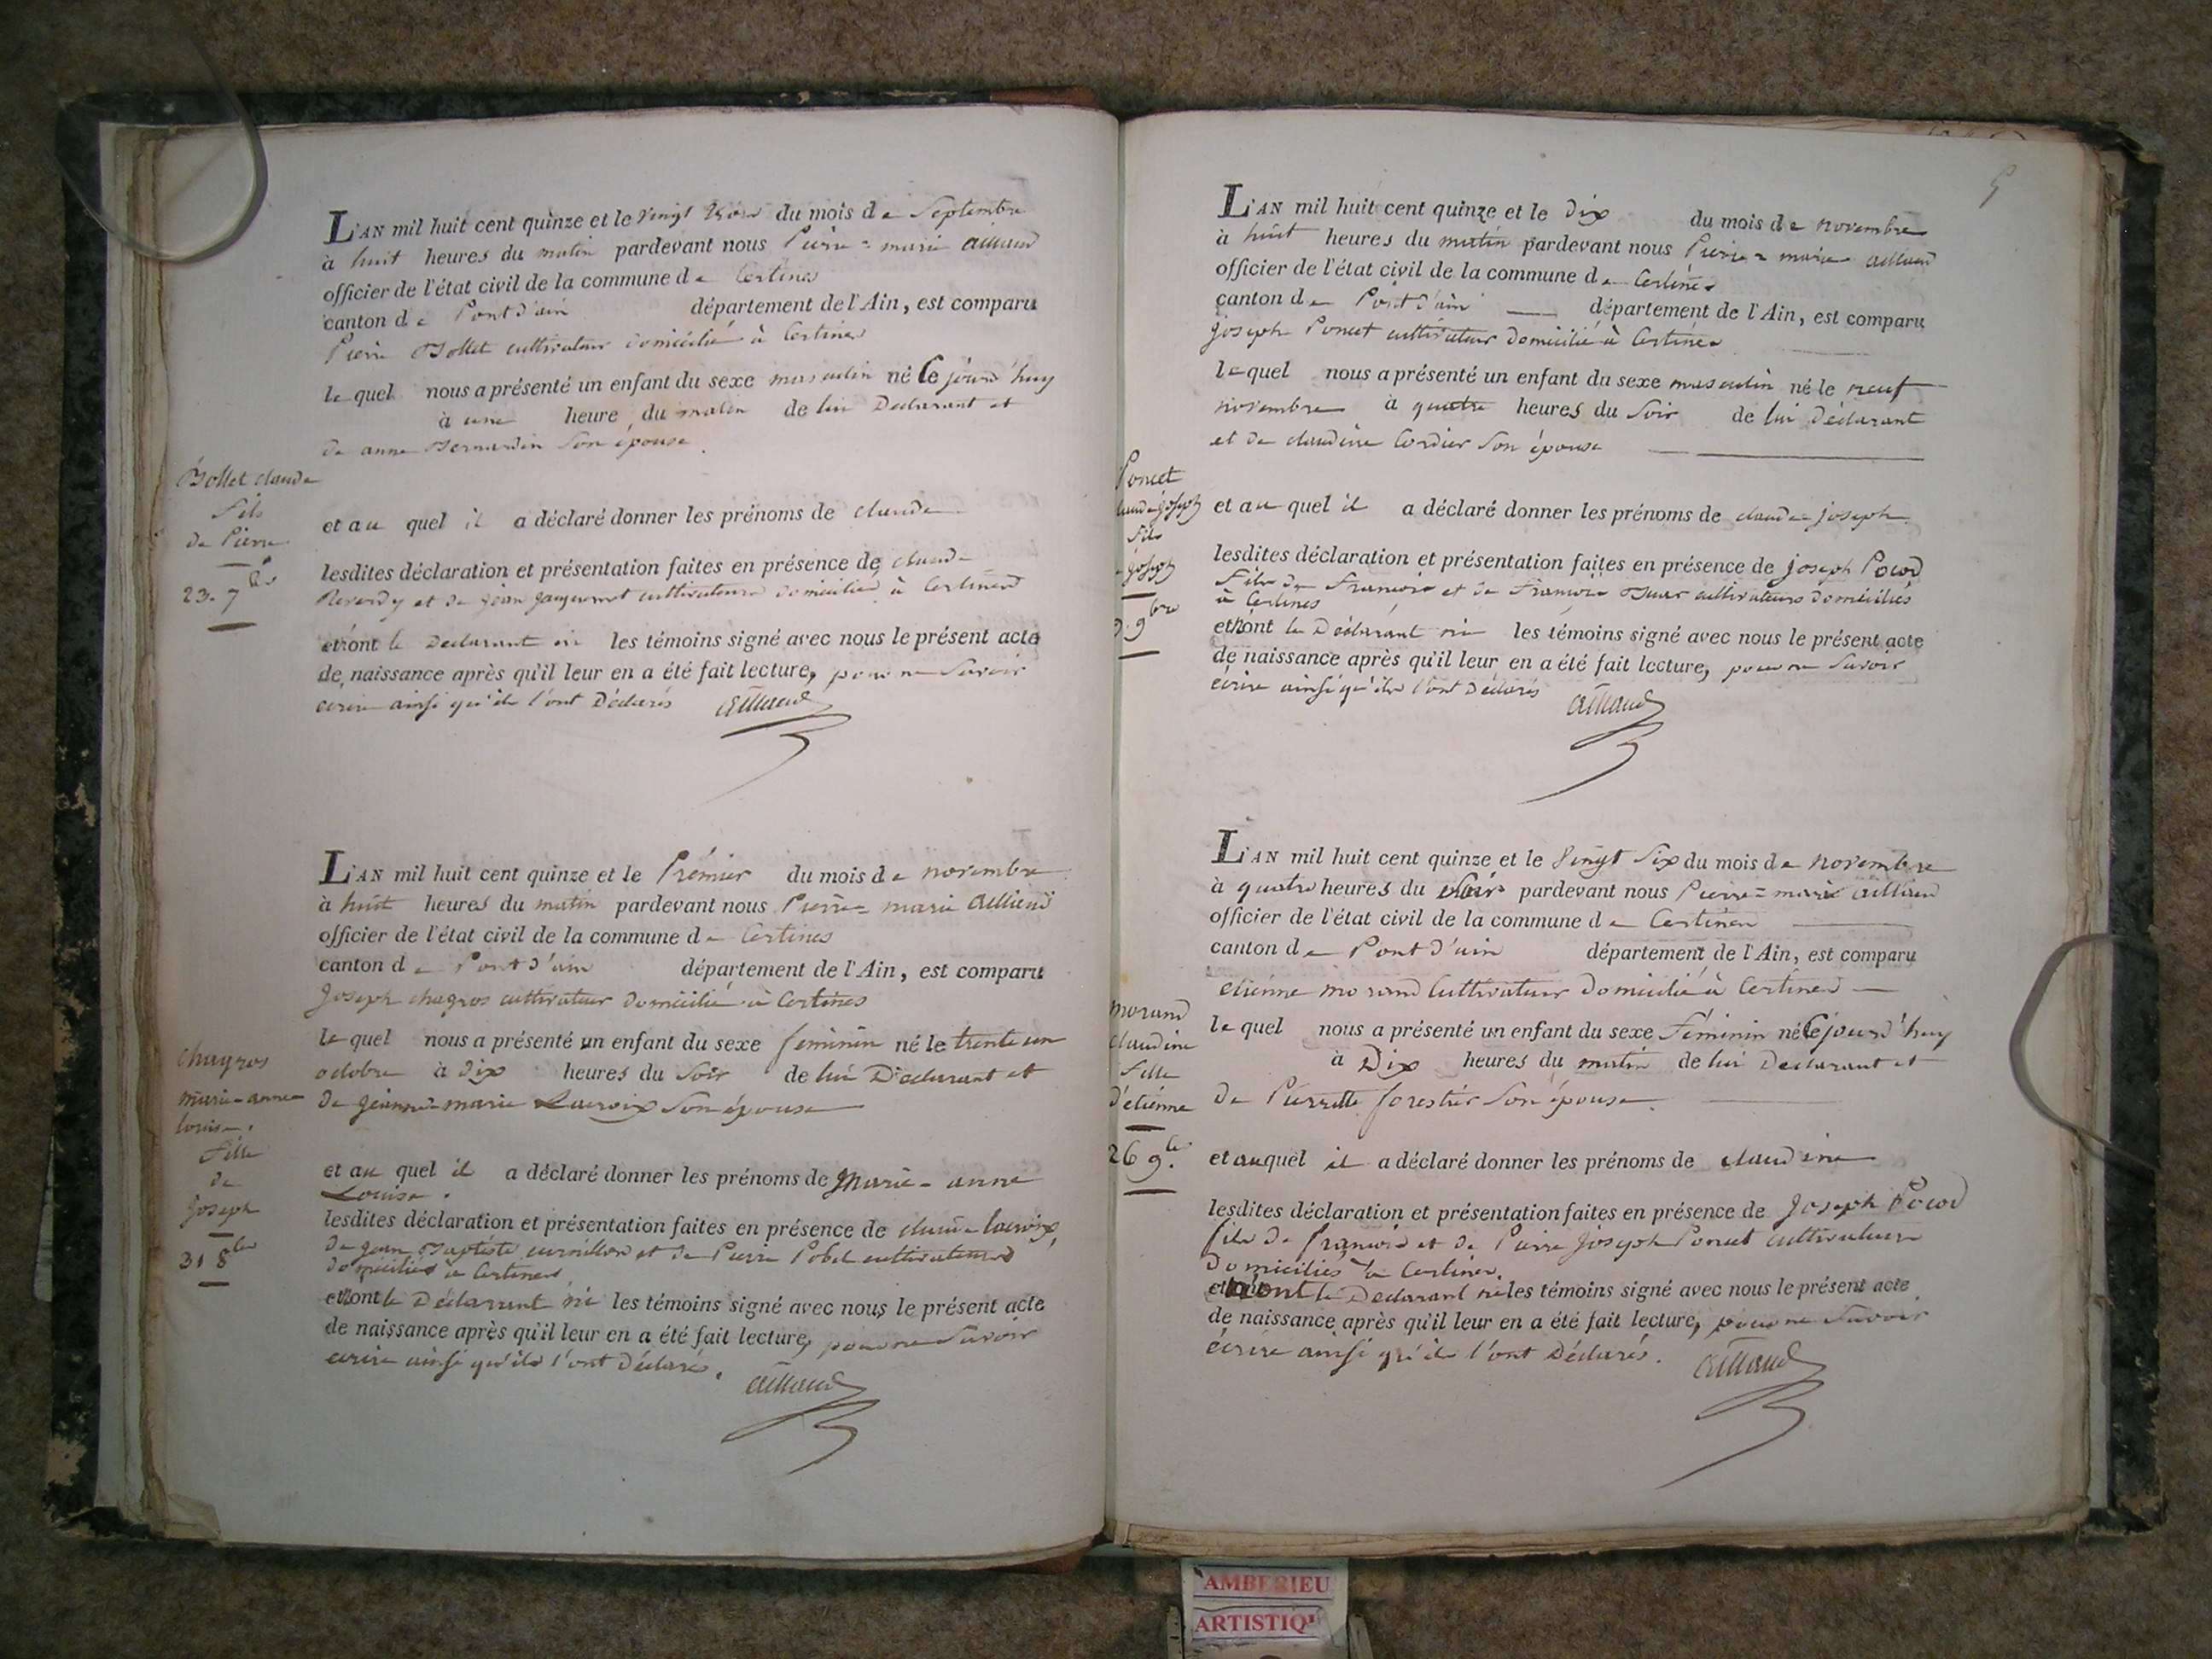 L'AN mil huit cent quinze et le vingt trois du mois de Septembre
à huit heures du matin pardevant nous Pierre=marie aillaud
officier de l'état civil de la commune de Certines
canton de Pont d'ain département de l'Ain, est comparu
Pierre Bollet cultivateur domicilié à Certines
lequel nous a présenté un enfant du sexe masculin né Ce jourd'huy
à une heure du matin de lui Déclarant et
de anne Bernardin Son épouse
Bollet claude
fils
de Pierre
23. 7bre
et au quel il a déclaré donner les prénoms de claude
lesdites déclaration et présentation faites en présence de claude
Reverdy et de jean cultivateurs domiciliés à Certines
et n'ont le Déclarant ni les témoins signé avec nous le présent acte
de naissance après qu'il leur en a été fait lecture, pour ne Savoir
ecrire ainsi qu'ils l'ont Déclarés aillaud
L'AN mil huit cent quinze et le Prémier du mois de novembre
à huit heures du matin pardevant nous Pierre=marie aillaud
officier de l'état civil de la commune de Certines
canton de Pont d'ain département de l'Ain, est comparu
Joseph chagros cultivateur domicilié à Certines
lequel nous a présenté un enfant du sexe féminin né le trente un
octobre à dix heures du Soir de lui Déclarant et
de jeanne=marie Lacroix Son épouse
chagros
marie-anne
louise.
fille
de
joseph
31 8bre
et au quel il a déclaré donner les prénoms de Marie-anne
Louise.
lesdites déclaration et présentation faites en présence de claude lacroix,
de jean Baptiste et de Pierre Pobel cultivateurs
domiciliés à Certines
et n'ont le Déclarant ni les témoins signé avec nous le présent acte
de naissance après qu'il leur en a été fait lecture, pour ne Savoir
ecrire ainsi qu'ils l'ont Déclarés. aillaud
L'AN mil huit cent quinze et le dix du mois de novembre
à huit heures du matin pardevant nous Pierre=marie aillaud
officier de l'état civil de la commune de Certines
canton de Pont d'ain département de l'Ain, est comparu
joseph Poncet cultivateur domicilié à Certines
lequel nous a présenté un enfant du sexe masculin né le neuf
novembre à quatre heures du Soir de lui Déclarant
et de claudine Cordier Son épouse
Poncet
claude joseph
fils
joseph
9. 9bre
et au quel il a déclaré donner les prénoms de claude-joseph
lesdites déclaration et présentation faites en présence de joseph Pocod
fils de François et de François cultivateurs domiciliés
à Certines
et n'ont le Déclarant ni les témoins signé avec nous le présent acte
de naissance après qu'il leur en a été fait lecture, pour ne Savoir
écrire ainsi qu'ils l'ont Déclarés aillaud
L'AN mil huit cent quinze et le vingt Six du mois de novembre
à quatre heures du Soir pardevant nous Pierre=marie aillaud
officier de l'état civil de la commune de Certines
canton de Pont d'ain département de l'Ain, est comparu
etienne morand Cultivateur Domicilié à Certines
lequel nous a présenté un enfant du sexe Féminin né Ce jourd'huy
à Dix heures du matin de lui Declarant et
de Pierrette forestier Son épouse.
morand
claudine
fille
d'etiénne
26 9bre
et au quel il a déclaré donner les prénoms de claudine
lesdites déclaration et présentation faites en présence de Joseph Pocod
fils de françois et de Pierre Joseph Poncet cultivateurs
domiciliés à Certines.
et n'ont le Declarant ni les témoins signé avec nous le présent acte
de naissance après qu'il leur en a été fait lecture, pour ne Savoir
écrire ainsi qu'ils l'ont Déclarés. aillaud
AMBERIEU
ARTISTIQU